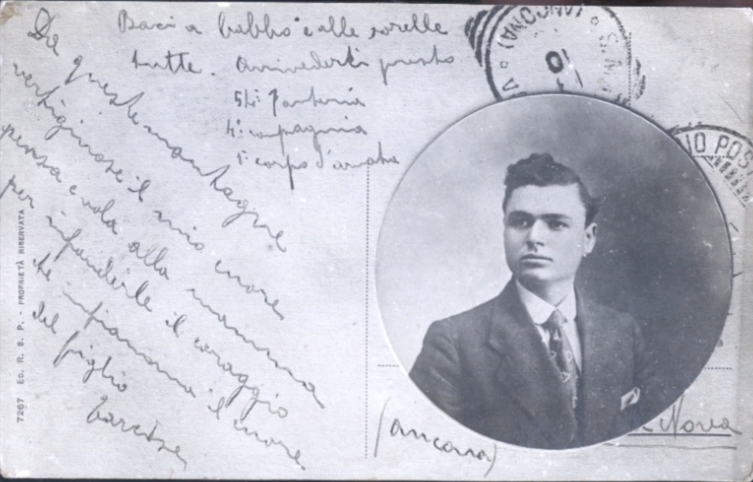 Baci a babbo e alle sorelle
tutte. Arrivederti presto
54° Fanteria
4° compagnia
1° corpo d'armata
Da queste montagne
vertiginose il mio cuore
pensa e vola alla mamma
per infonderle il coraggio
che infiamma il cuore
del figlio
Tarcisio
(ANCONA)
10
NO POS
7267 ED. R. S. P. - PROPRIETÀ RISERVATA
(Ancona)
Nova